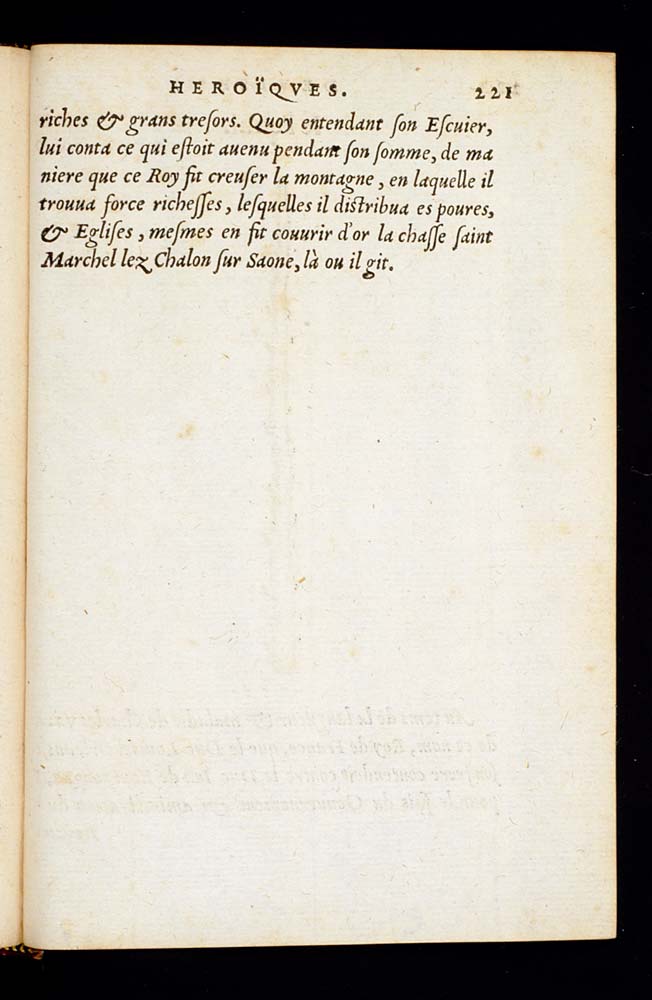 HEROÏQVES. 221
riches & grans treſors. Quoy entendant ſon Eſcuier,
lui conta ce qui eſtoit auenu pendant ſon ſomme, de ma
niere que ce Roy fit creuſer la montagne, en laquelle il
trouua force richeſſes, leſquelles il diſtribua es poures,
& Egliſes, meſmes en fit couurir d'or la chaſſe ſaint
Marchel lez Chalon ſur Saone, là ou il git.